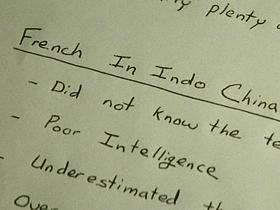 plenty
French In Indo China
- Did not know the
- Poor Intelligence
- Underestimated
Over